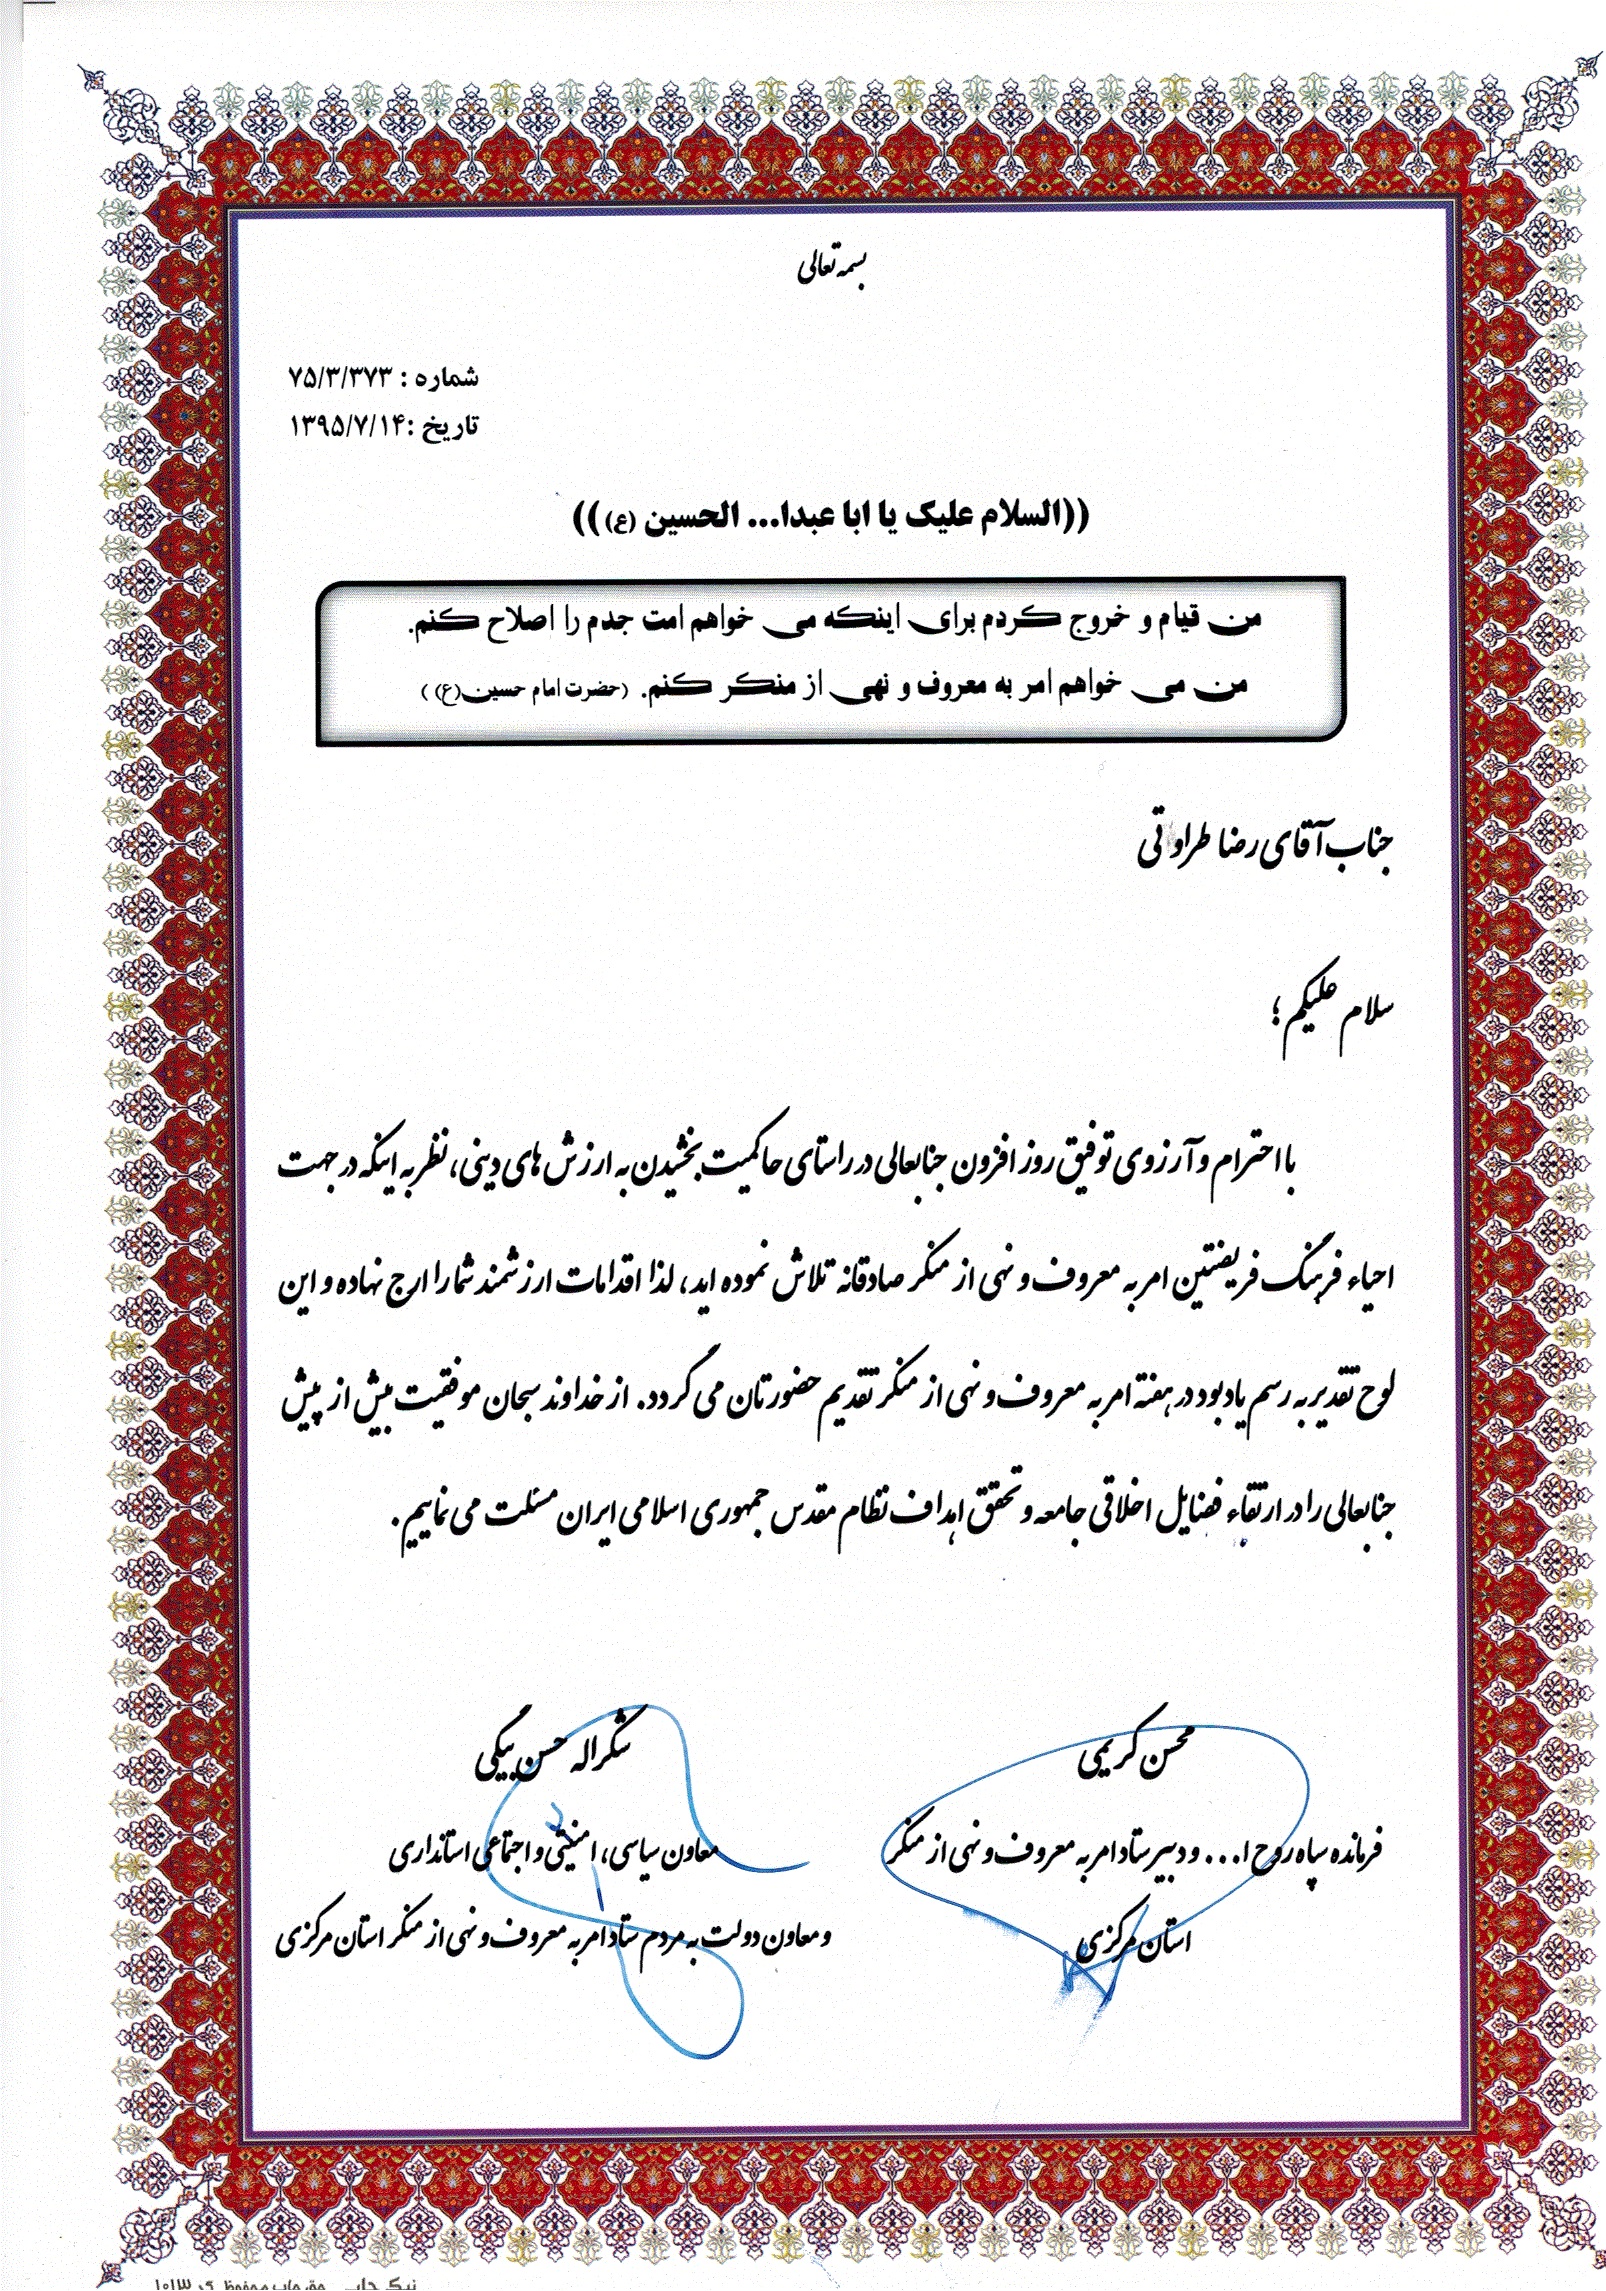 بسمه تعالی
شماره : ۷۵/۳/۳۷۳
تاریخ :۱۳۹۵/۷/۱۴
((السلام علیک یا ابا عبدا... الحسین (ع)))
من قیام و خروج کردم برای اینکه می خواهم امت جدم را اصلاح کنم.
من می خواهم امر به معروف و نهی از منکر کنم. (حضرت امام حسین(ع) )
جناب آقای رضا طراوتی
سلام علیکم ؛
با احترام و آرزوی توفیق روز افزون جنابعالی در راستای حاکمیت بخشیدن به ارزش های دینی، نظر به اینکه در جهت
احیاء فرهنگ فریضتین امر به معروف و نهی از منکر صادقانه تلاش نموده اید، لذا اقدامات ارزشمند شما را ارج نهاده و این
لوح تقدیر به رسم یادبود در هفته امر به معروف و نهی از منکر تقدیم حضورتان می گردد. از خداوند سبحان موفقیت بیش از پیش
جنابعالی را در ارتقاء فضایل اخلاقی جامعه و تحقق اهداف نظام مقدس جمهوری اسلامی ایران مسئلت می نماییم.
محسن کریمی
فرمانده سپاه روح ا... و دبیر ستاد امر به معروف و نهی از منکر
استان مرکزی
شکراله حسن بیگی
معاون سیاسی، امنیتی و اجتماعی استانداری
و معاون دولت به مردم ستاد امر به معروف و نهی از منکر استان مرکزی